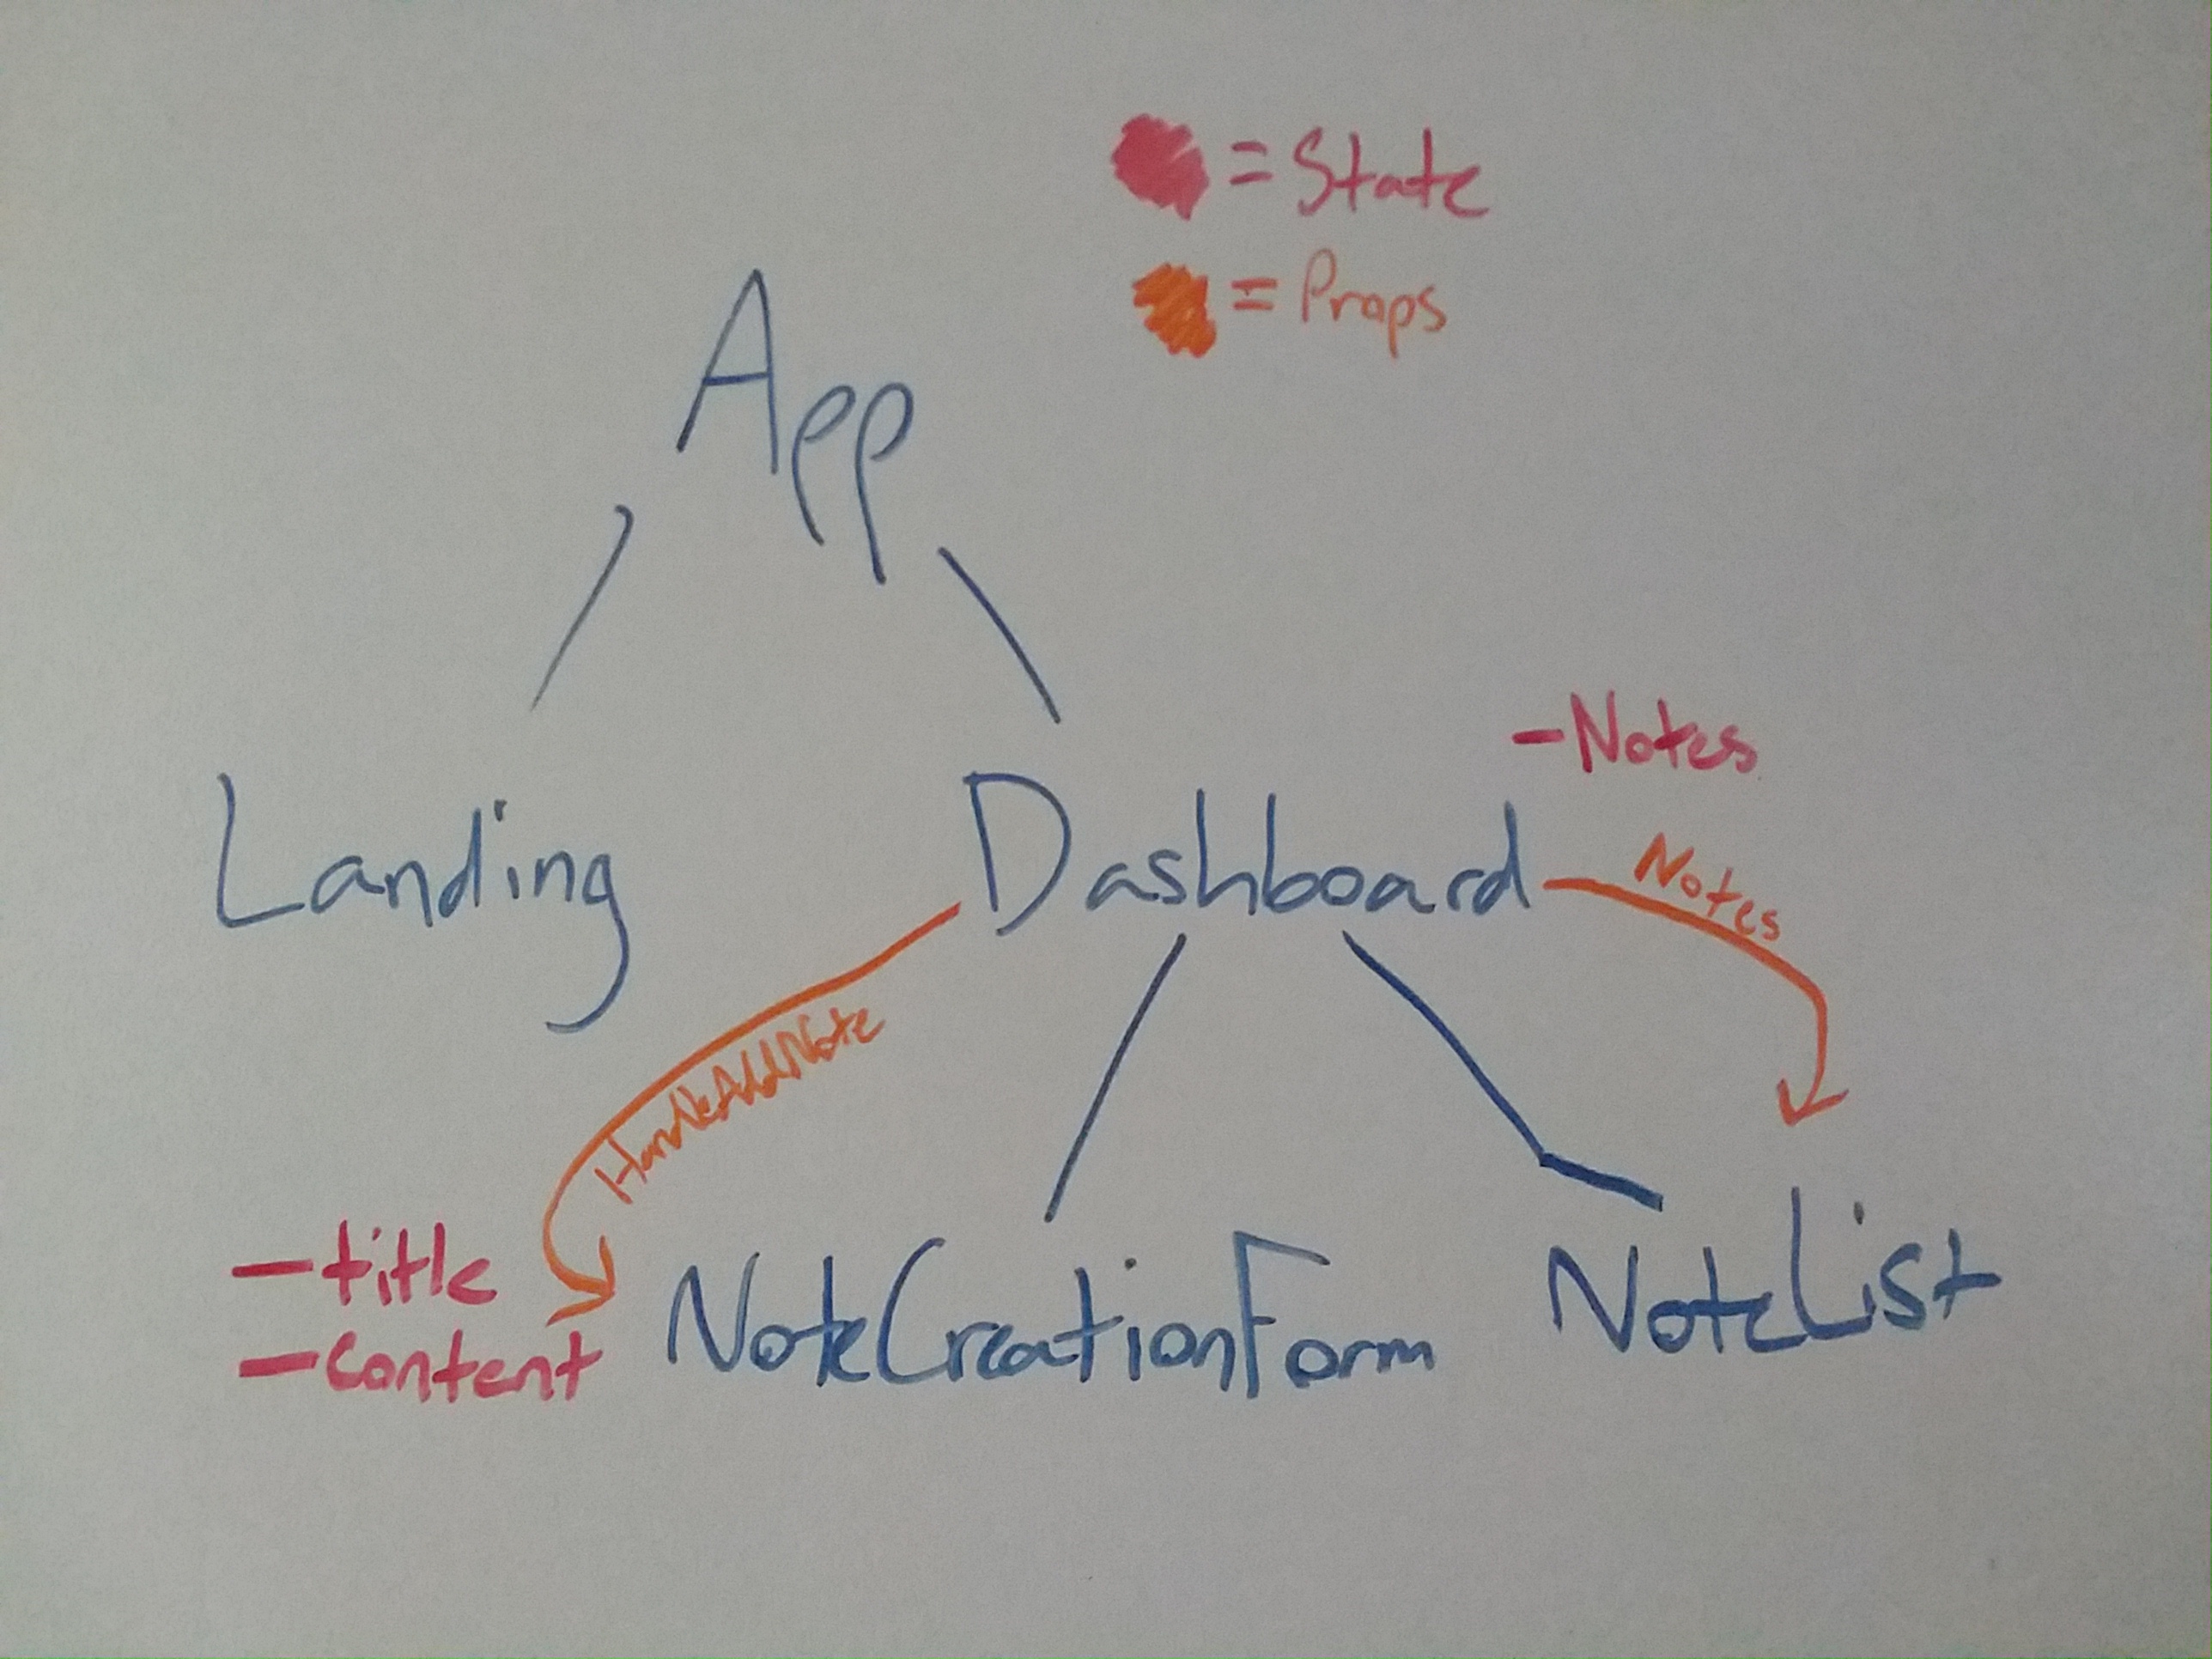 = State
= Props
App
-Notes
Landing
Dashboard
Notes
HandleAddNote
-title
-Content
NoteCreationForm
NoteList